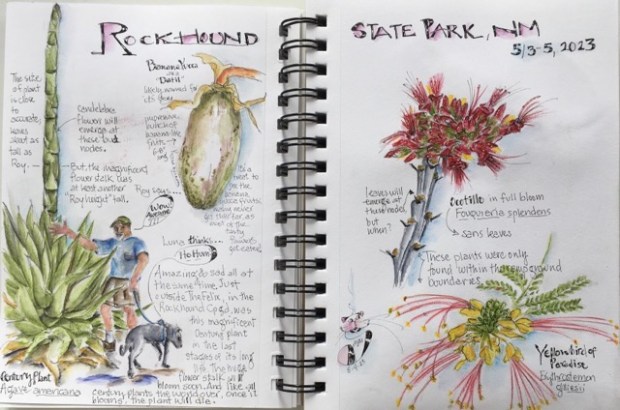 ROCKHOUND
STATE PARK, NM
5/3-5, 2023
The size
of plant
is close
to
accurate,
leaves
almost as
tall as
Roy.
candelabra
flowers will
emerge at
these bud
nodes.
But, the magnificent
flower stalk was
at least another
"Roy height" tall.
Banana Yucca
aka
"Datil"
likely named for
its
banana like
fruits
6"
Roy says...
Wow!
Awesome!
to see
the
banana
fruits
as
most
of the
get eaten.
Luna thinks...
Ho Hum!
Amazing & sad all at
the same time. Just
outside in the
Rockhound Cpgd. was
this magnificent
Century plant
in the last
stages of its long
life. The huge
flower stalk will
bloom soon. And like all
century plants the world over, once it
blooms, the plant will die.
Century Plant
Agave americana
leaves will
emerge at
these nodes,
but
when?
Ocotillo in full bloom
Fouquieria splendens
sans leaves
These plants were only
found within the campground
boundaries.
Yellow bird of
Paradise
Erythrostemon
gilliesii